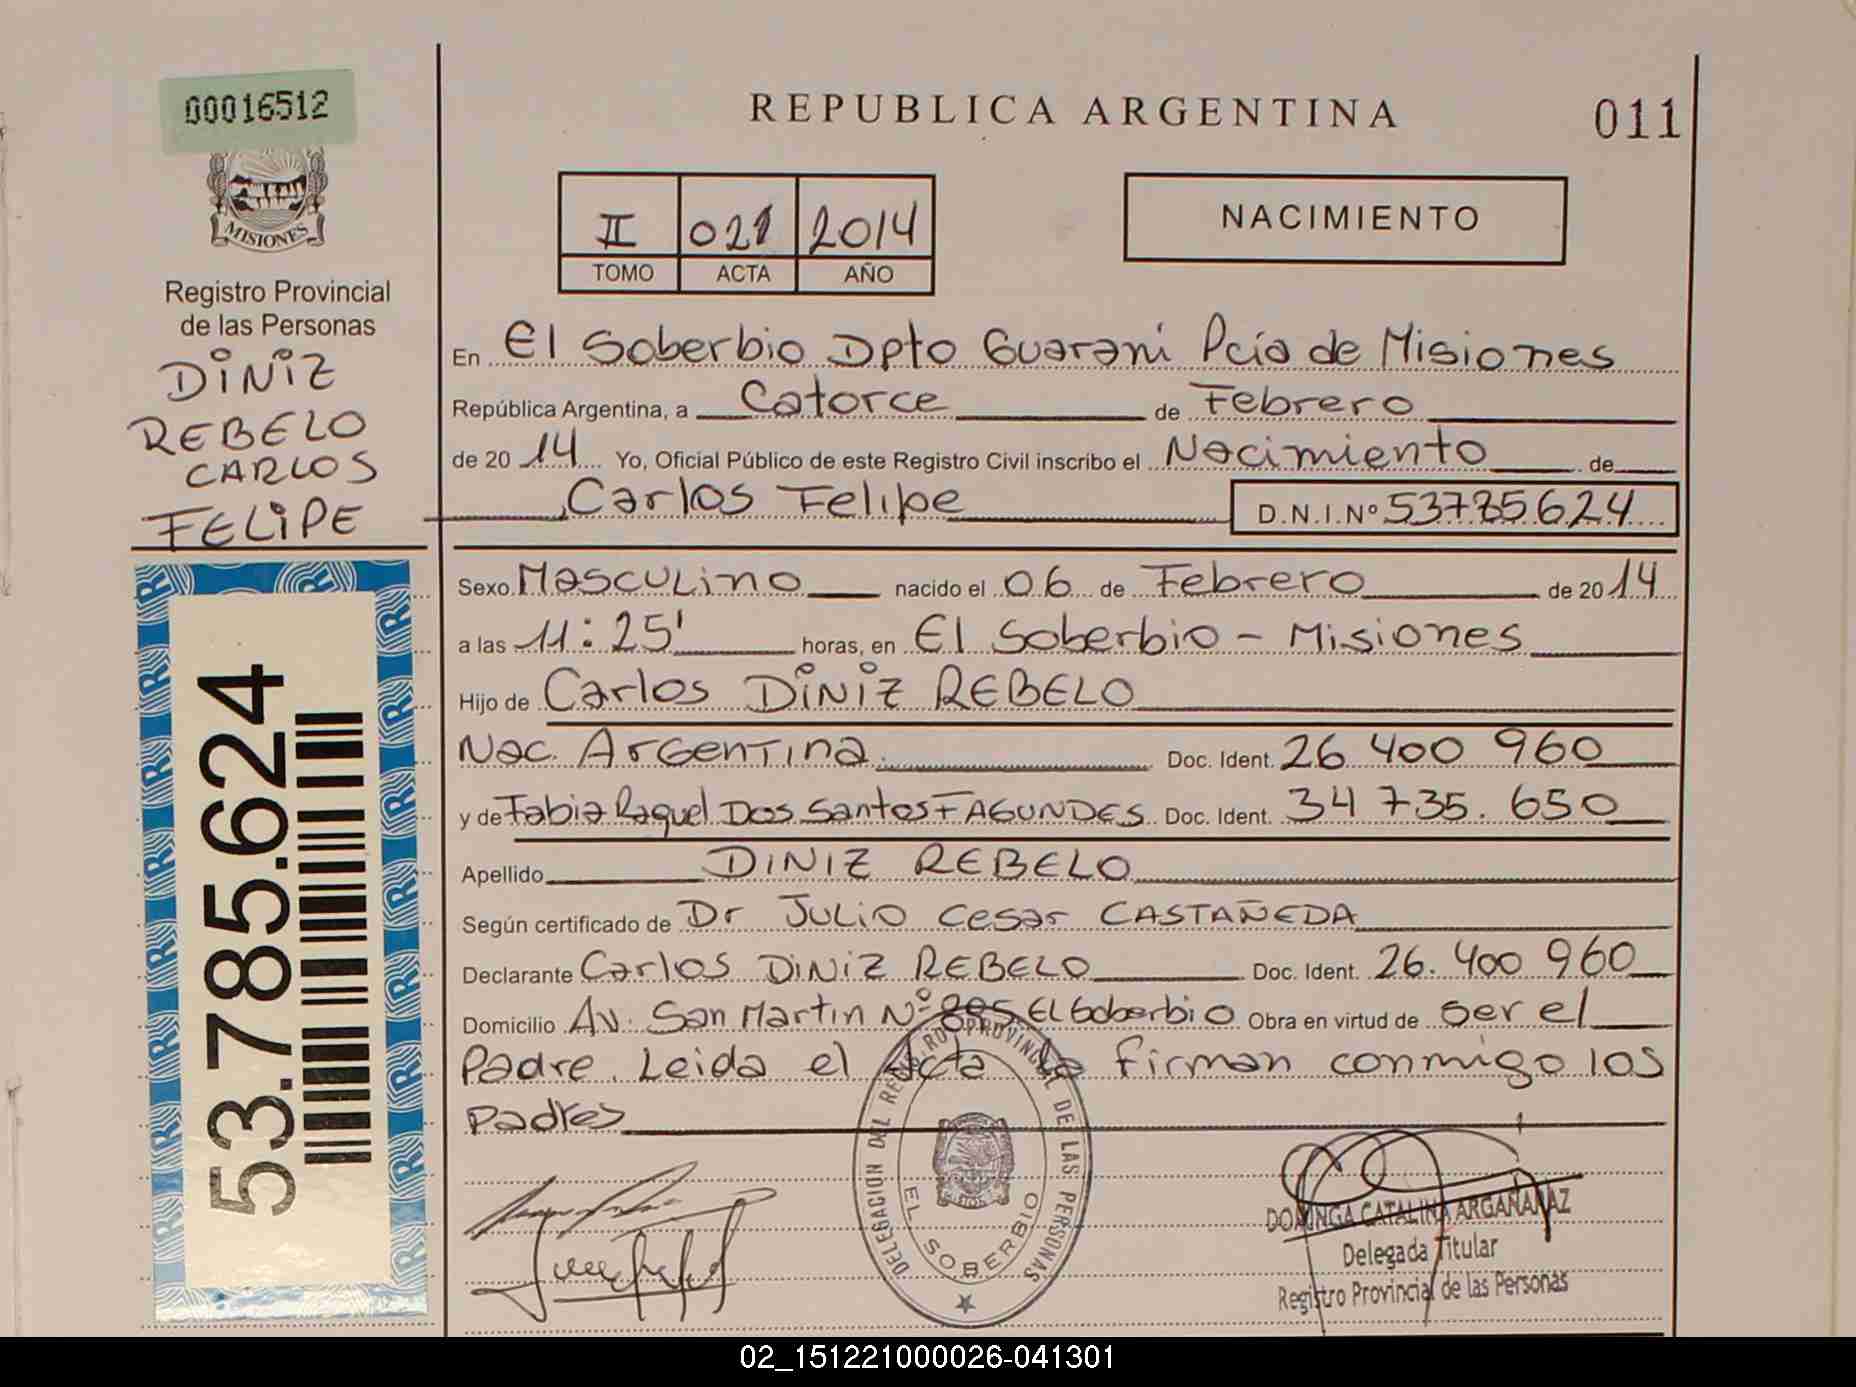 00016512
REPUBLICA ARGENTINA
011
MISIONES
Registro Provincial
de las Personas
DINIZ
REBELO
CARLOS
FELIPE
II 021 2014
TOMO ACTA AÑO
NACIMIENTO
En El Soberbio Dpto Guarani Pcia de Misiones
República Argentina, a Catorce de Febrero
de 20 14 Yo, Oficial Público de este Registro Civil inscribo el Nacimiento de
Carlos Felipe D.N.I.Nº 53785624
Sexo Masculino nacido el 06 de Febrero de 20 14
a las 11:25' horas, en El Soberbio - Misiones
Hijo de Carlos DINIZ REBELO
Nac. Argentina. Doc. Ident. 26 400 960
y de Fabia Raquel Dos Santos FAGUNDES Doc. Ident. 34 735. 650
Apellido DINIZ REBELO
Según certificado de Dr JULIO Cesar CASTAÑEDA
Declarante Carlos DINIZ REBELO Doc. Ident. 26. 400 960
Domicilio Av. San Martin Nº 895 El Soberbio Obra en virtud de ser el
Padre. Leida el Acta la firman conmigo los
padres
53.785.624
DELEGACION DEL REGISTRO PROVINCIAL DE LAS PERSONAS
EL SOBERBIO
DOMINGA CATALINA ARGAÑARAZ
Delegada Titular
Registro Provincial de las Personas
02_151221000026-041301